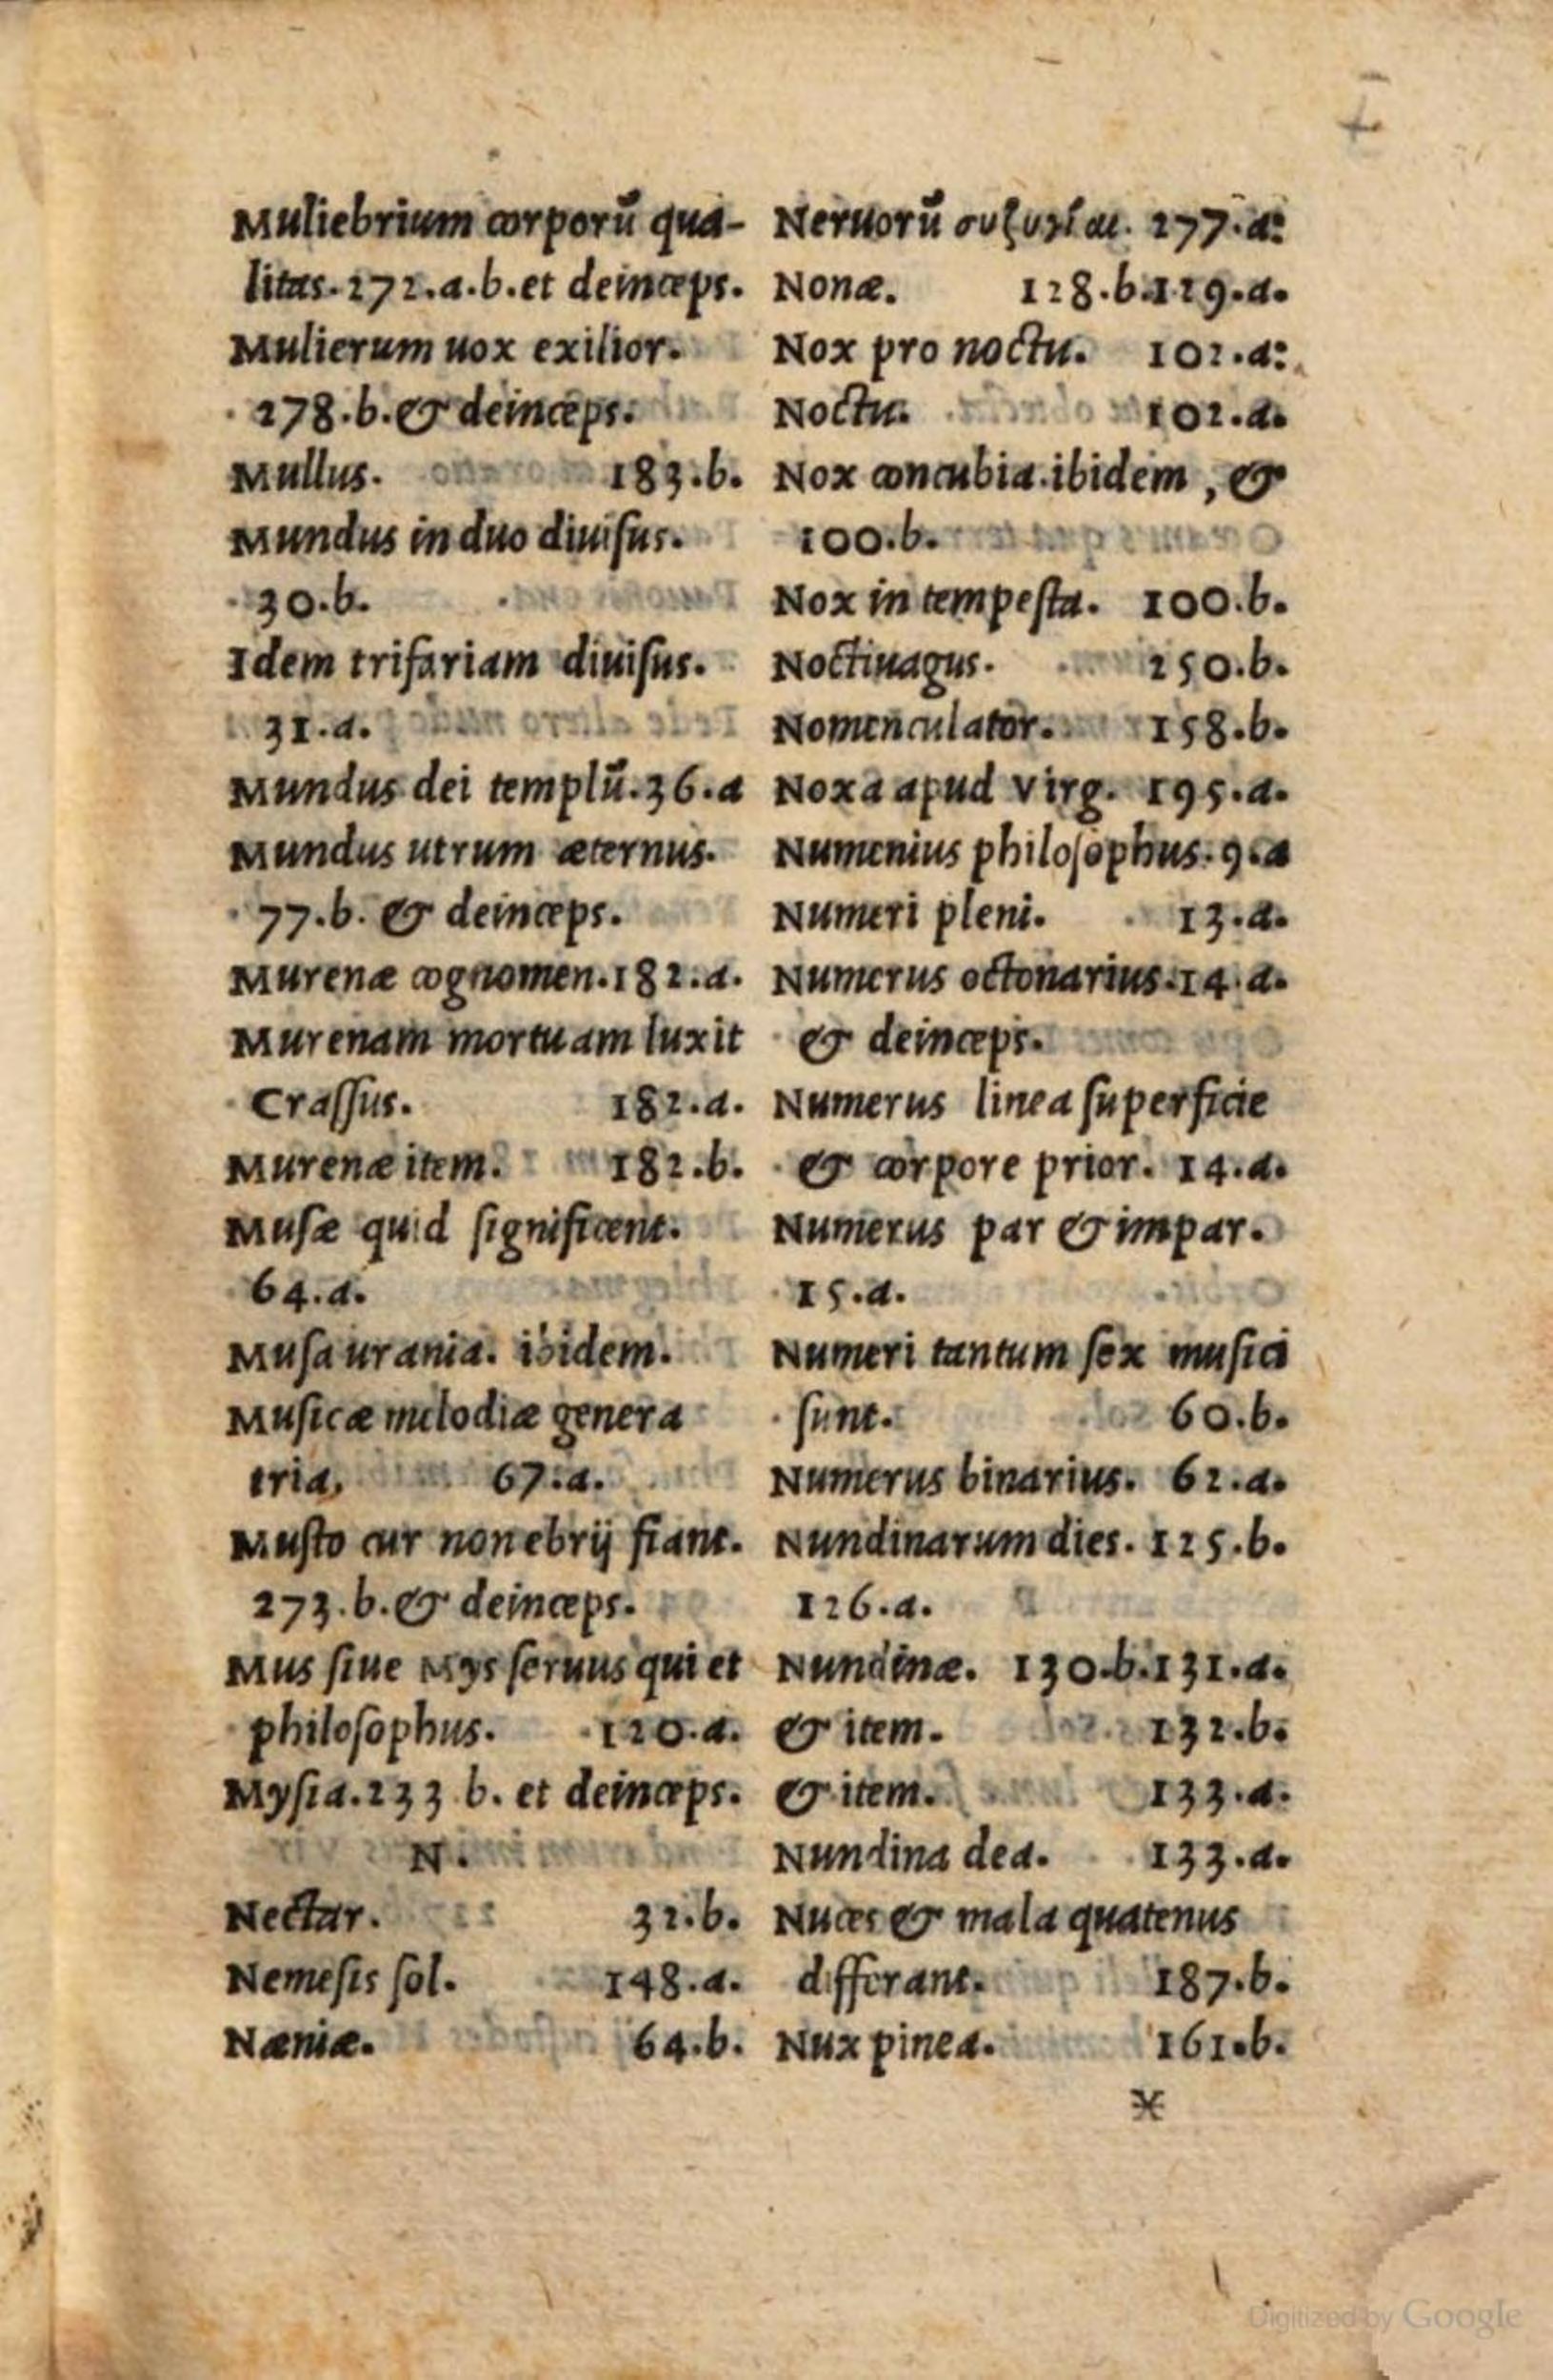 Muliebrium corporū qua-
litas. 272.a.b.et deinceps.
Mulierum uox exilior.
278.b.& deinceps.
Mullus. 183.b.
Mundus in duo diuiſus.
30.b.
Idem trifariam diuiſus.
31.a.
Mundus dei templū.36.a
Mundus utrum æternus.
77.b. & deinceps.
Murenæ cognomen.182.a.
Murenam mortuam luxit
Craſſus. 182.a.
Murenæ item. 182.b.
Muſæ quid ſignificent.
64.a.
Muſa urania. ibidem.
Muſicæ melodiæ genera
tria, 67.a.
Muſto cur non ebrij fiant.
273.b.& deinceps.
Mus ſiue Mys ſeruus qui et
philoſophus. 120.a.
Myſia.233 b. et deinceps.
N.
Nectar. 32.b.
Nemeſis ſol. 148.a.
Næniæ. 64.b.
Neruorū συζυγίαι. 277.a:
Nonæ. 128.b.129.a.
Nox pro noctu. 102.a:
Noctu. 102.a.
Nox concubia.ibidem, &
100.b.
Nox in tempeſta. 100.b.
Noctiuagus. 250.b.
Nomenculator. 158.b.
Noxa apud Virg. 195.a.
Numenius philoſophus.9.a
Numeri pleni. 13.a.
Numerus octonarius.14.a.
& deinceps.
Numerus linea ſuperficie
& corpore prior. 14.a.
Numerus par & impar.
15.a.
Numeri tantum ſex muſici
ſunt. 60.b.
Numerus binarius. 62.a.
Nundinarum dies. 125.b.
126.a.
Nundinæ. 130.b.131.a.
& item. 132.b.
& item. 133.a.
Nundina dea. 133.a.
Nuces & mala quatenus
differant. 187.b.
Nux pinea. 161.b.
*
Digitized by Google